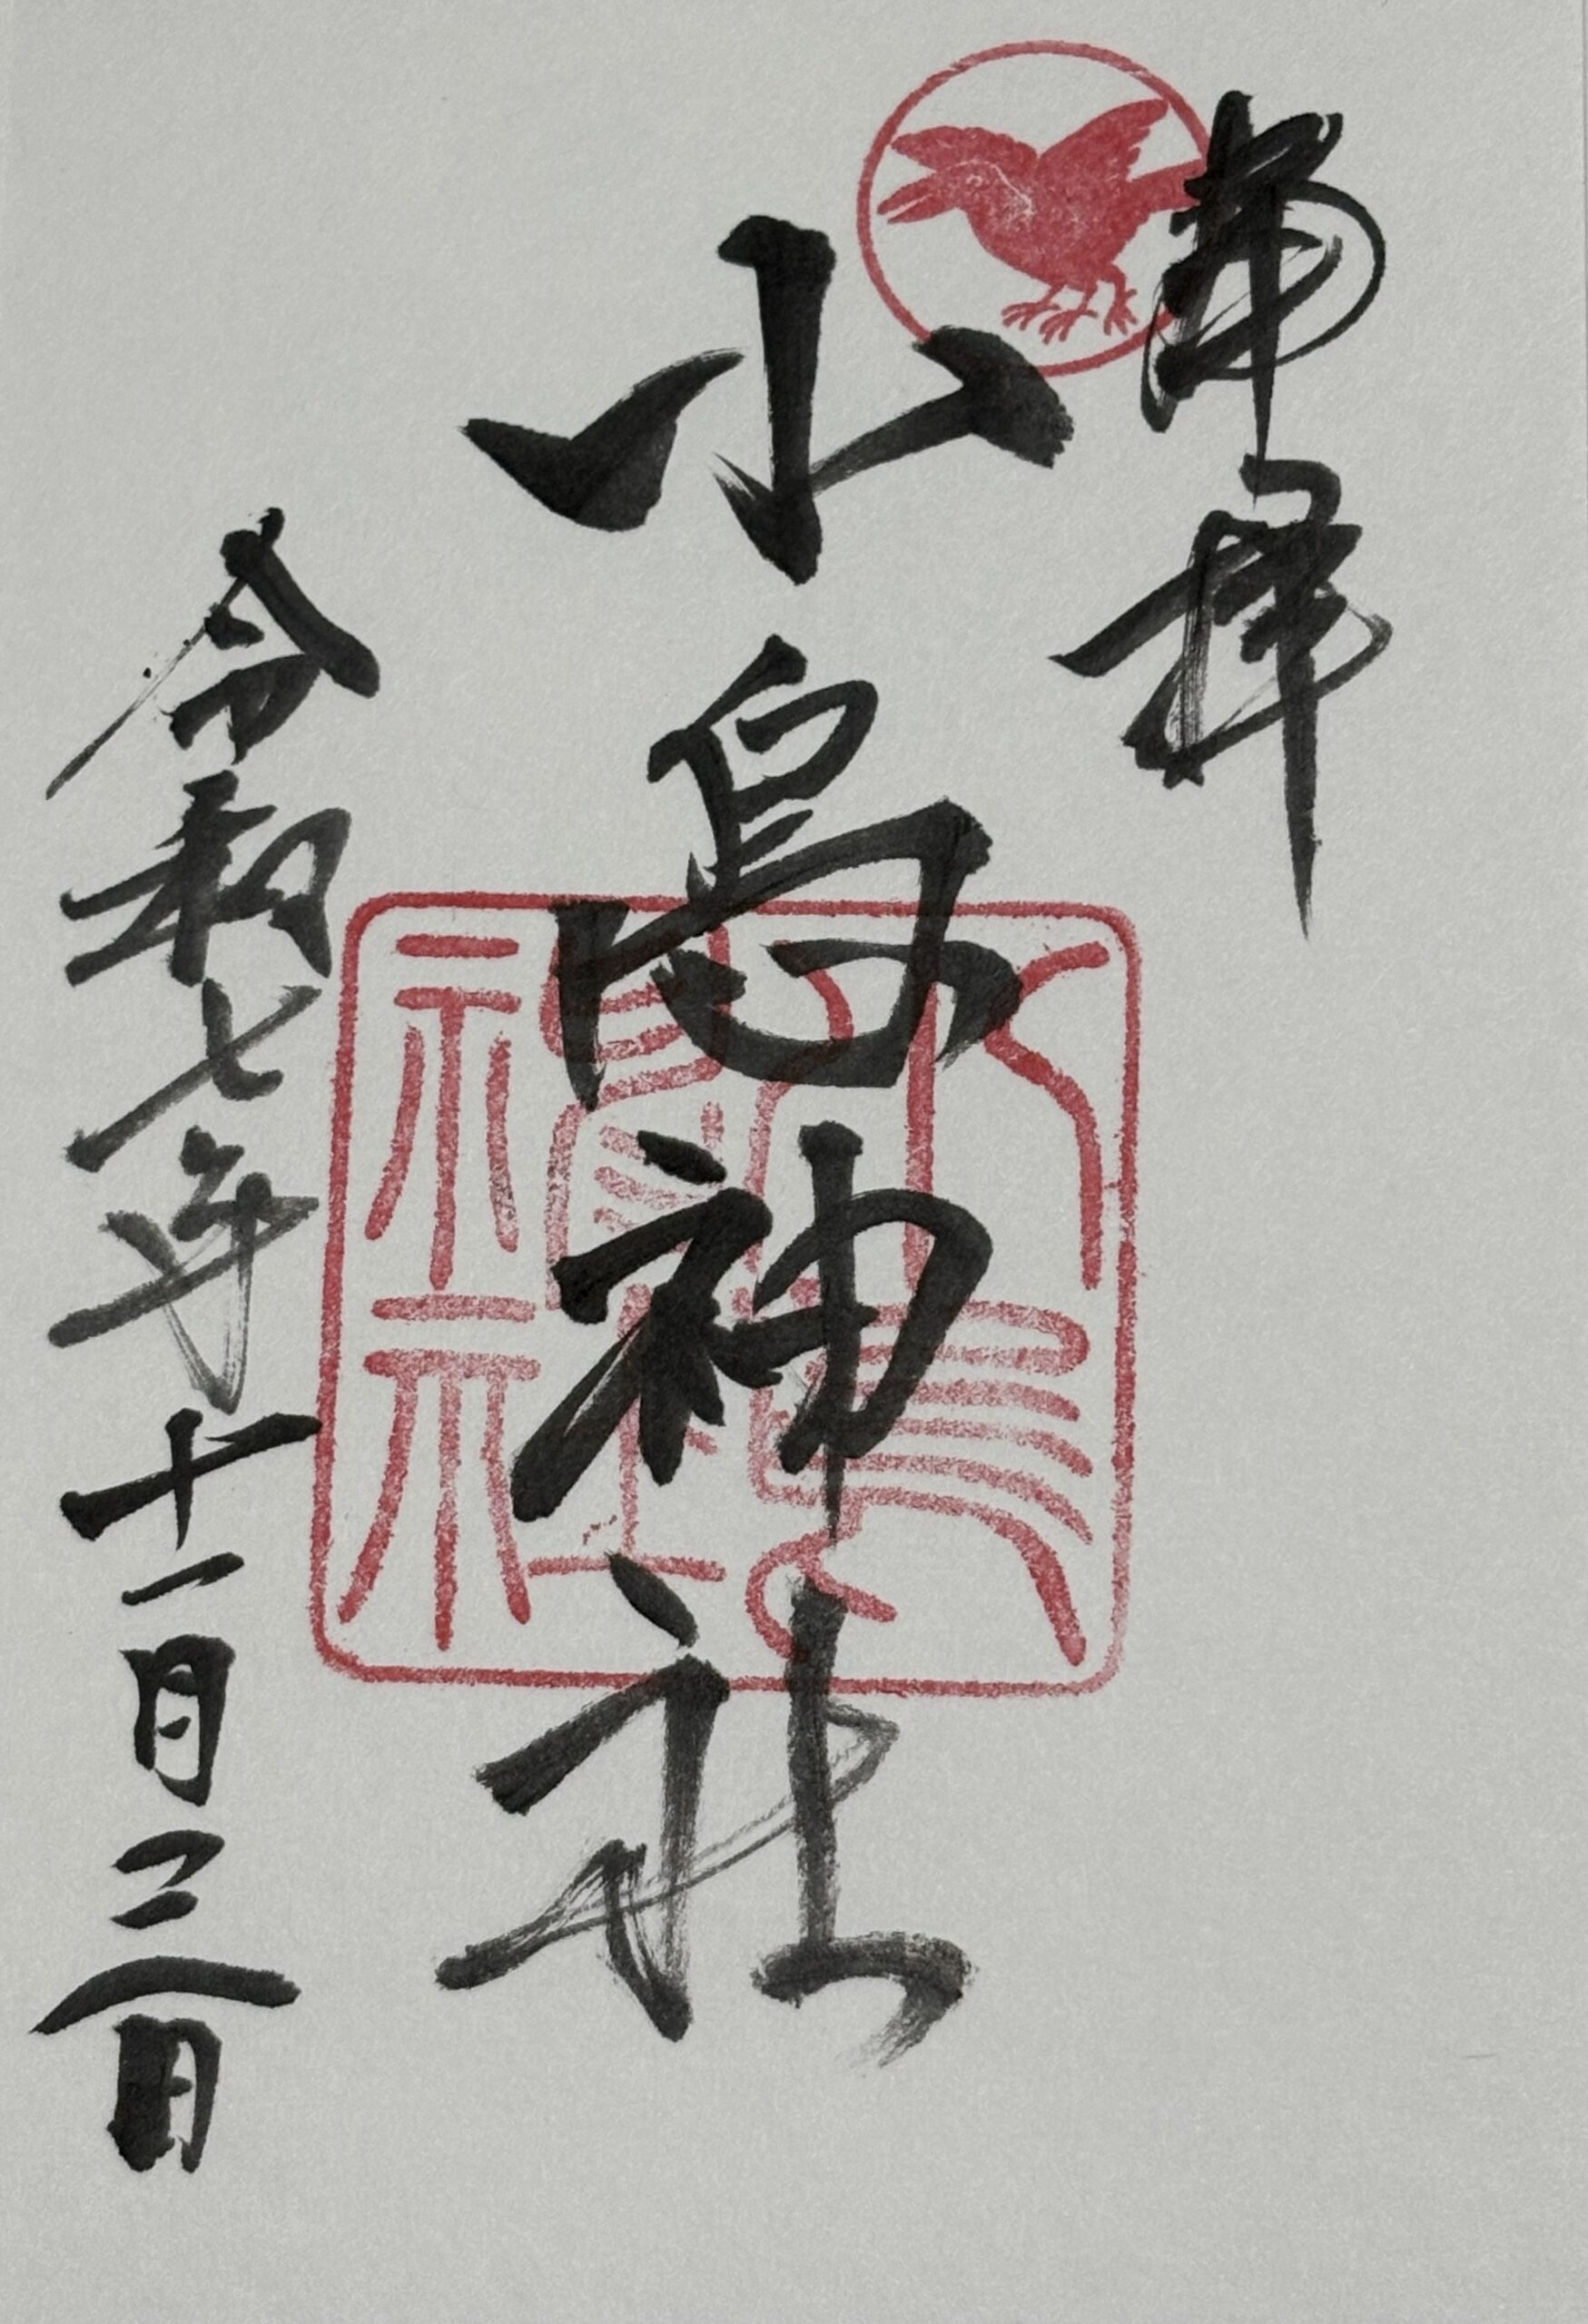 奉拝
小烏神社
令和七年十一月三日
小烏
神社